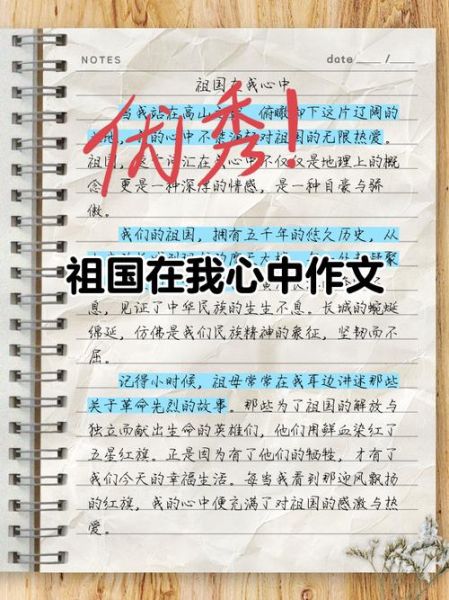 NOTES
date ___ /___
祖国在我心中
当我站在高山 俯瞰脚下这片辽阔的
地， 的心中不禁 对祖国的无限热爱。
优秀！
祖国，这个词汇在我心中不仅仅是地理上的概
念，更是一种深厚的情感，是一种自豪与骄
傲。
我们的祖国，拥有五千年的悠久历史，从
祖国在我心中作文
息，见证了中华民族的生生不息。长城的蜿蜒
绵延，仿佛是我们民族精神的象征，坚韧而不
屈。
记得小时候，祖母常常在我耳边讲述那些
关于革命先烈的故事。那些为了祖国的解放与
独立而献出生命的英雄们，他们用鲜血染红了
五星红旗。正是因为有了他们的牺牲，才有了
我们今天的幸福生活。每当我看到那迎风飘扬
的红旗，我的心中便充满了对祖国的感激与热
爱。